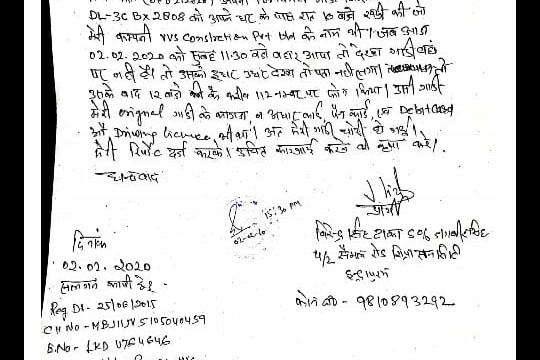 DL-3C BX 2808 को अपने घर के पास रात 10 बजे खड़ी की जो
मेरी कम्पनी VVS Construction Pvt Ltd के नाम थी। जब आज
02.02.2020 को सुबह 11:30 बजे बाहर आया तो देखा गाड़ी वहां
पर नहीं है। तो उसको इधर उधर देखा तो पता नहीं लगा। तो
उसके बाद 12 बजे के करीब 112 नम्बर पर फोन किया। उसी गाड़ी
मेरी original गाड़ी के कागजात, व आधार कार्ड, पैन कार्ड, Debit Card
औ Driving licence, भी था। अतः मेरी गाड़ी चोरी हो गई।
मेरी रिपोर्ट दर्ज करके। उचित कारवाई करने की कृपा करें।
धन्यवाद
15:30 PM
प्रार्थी
दिनांक
02.02.2020
विरेन्द्र सिंह ढाका S/o
रोड
इन्द्रापुरम
Reg Dt - 25/06/2015
CH No - MBJ11JV5105040459
E.No - 1KD U764646
फोन नं० - 9810893292